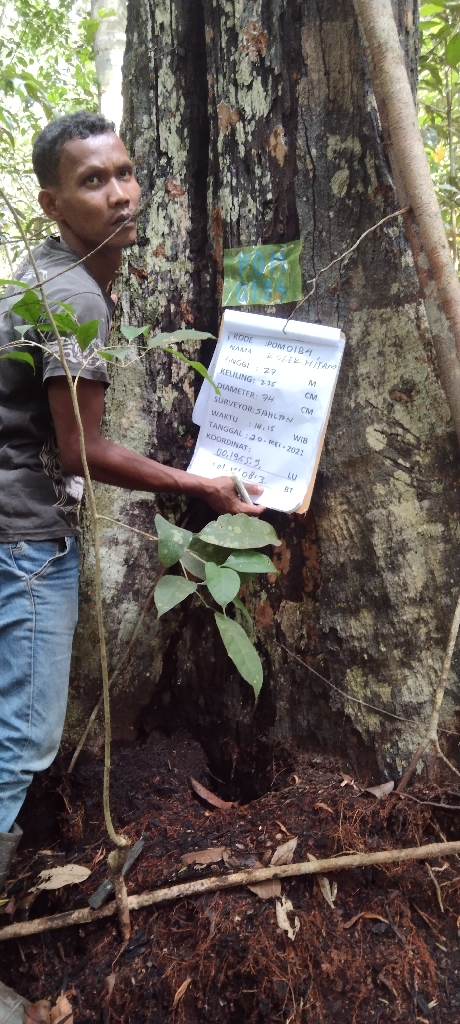 KODE : POM0184
NAMA : KULEK HITAM
TINGGI : 27 M
KELILING : 235 CM
DIAMETER : 74 CM
SURVEYOR : SAHLAN
WAKTU : 14.15 WIB
TANGGAL : 20 - MEI - 2021
KOORDINAT :
00.1965.9, LU
BT